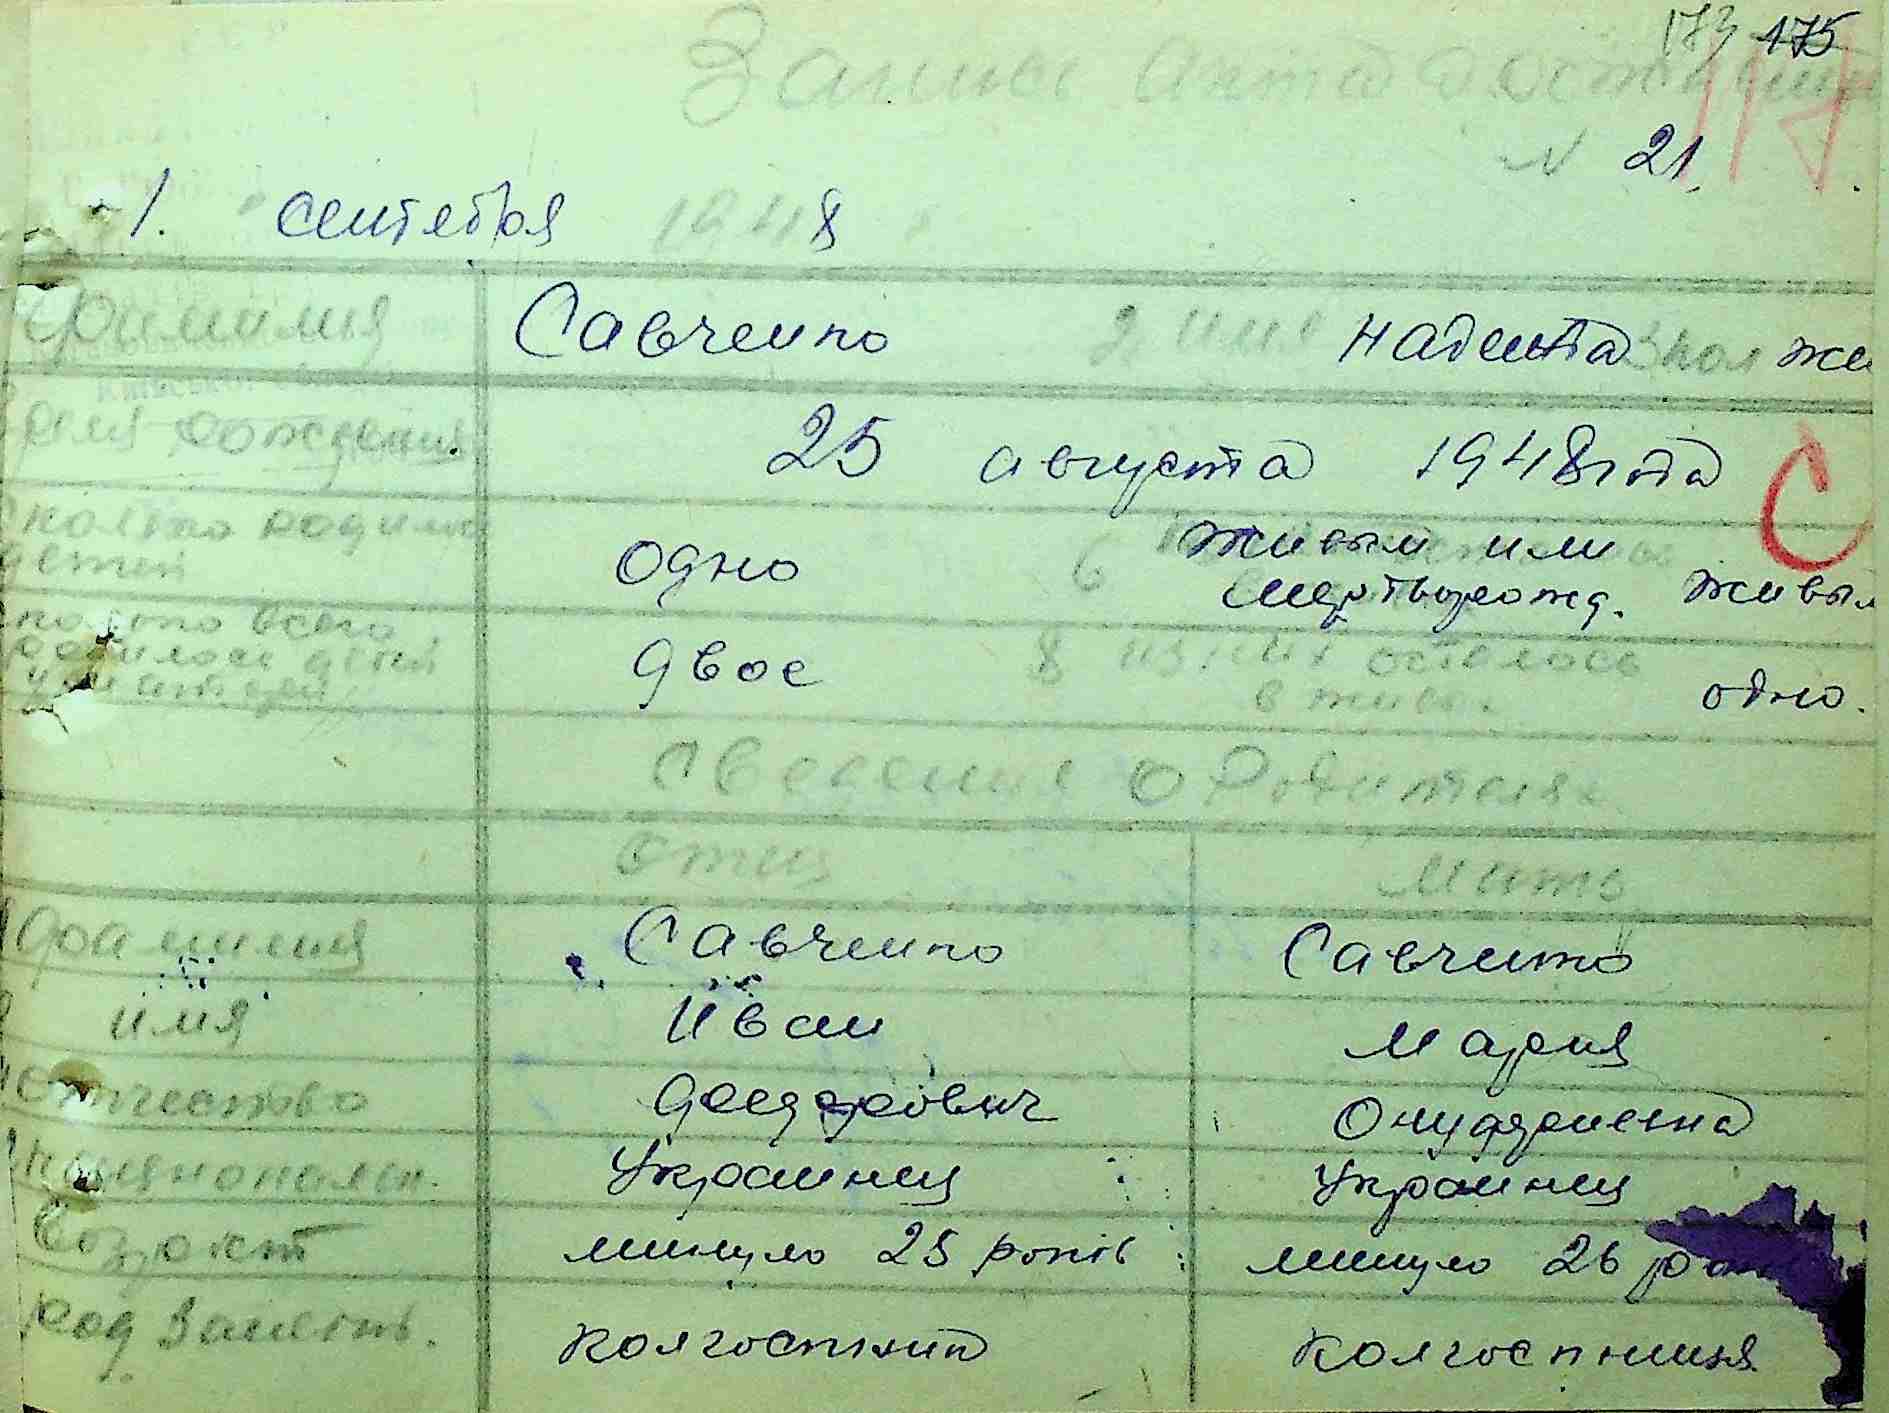 173 175
Запись акта о
N 21.
1. сентября 1948
Фамилия Савченко 2 имя надежда 3 пол же
рождения 25 августа 1948 года С
колько родило Одно 6 живым или живы
детей мертворожд.
колько всего двое 8 из них осталось одно.
родилось детей в живы
у матери
Сведения о Родителях
Отец Мать
Фамилия Савченко Савченко
имя Иван Мария
отчество Онуфриевна
национальн. Украинец Украинец
Возраст минуло 25 років минуло 26
род занять. колгоспник колгоспниця